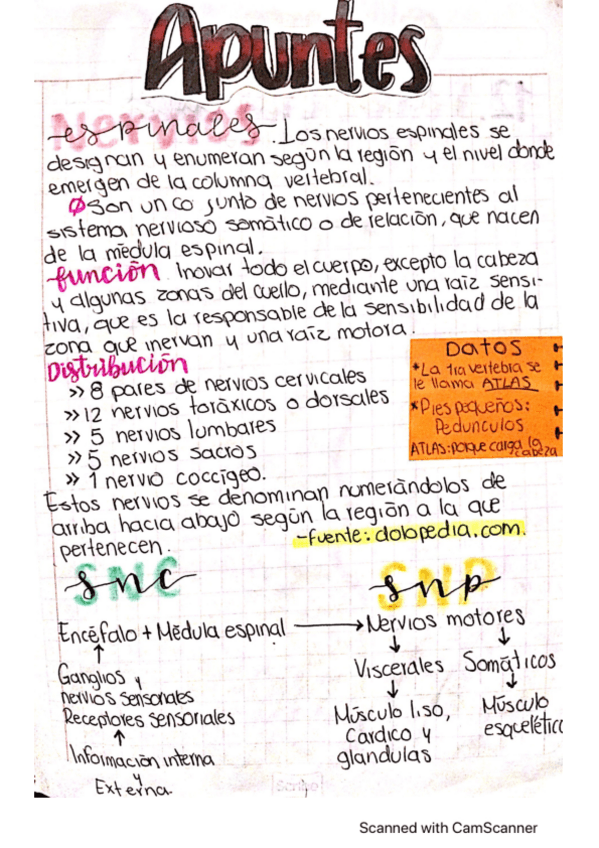 Apuntes
Nervios
espinales. Los nervios espinales se
designan y enumeran según la región y el nivel donde
emergen de la columna vertebral.
Son un conjunto de nervios pertenecientes al
sistema nervioso somático o de relación, que nacen
de la médula espinal.
función Inovar todo el cuerpo, excepto la cabeza
y algunas zonas del cuello, mediante una raíz sensi-
tiva, que es la responsable de la sensibilidad de la
zona que inervan y una raíz motora.
Distribución
>> 8 pares de nervios cervicales
>> 12 nervios toráxicos o dorsales
>> 5 nervios lumbares
>> 5 nervios sacros
>> 1 nervio coccígeo.
Datos
*La 1ra vertebra se
le llama ATLAS
*Pies pequeños:
Pedunculos
ATLAS: porque carga la
cabeza
Estos nervios se denominan numerándolos de
arriba hacia abajo según la región a la que
pertenecen.
-fuente: dolopedia.com.
SNC
snc
SNP
snp
Encéfalo + Médula espinal → Nervios motores
Ganglios y
nervios sensoriales
Receptores sensoriales
Información interna
y
Externa.
Viscerales
Somáticos
Músculo liso,
Cardico y
glandulas
Músculo
esquelético
Scribe
Scanned with CamScanner